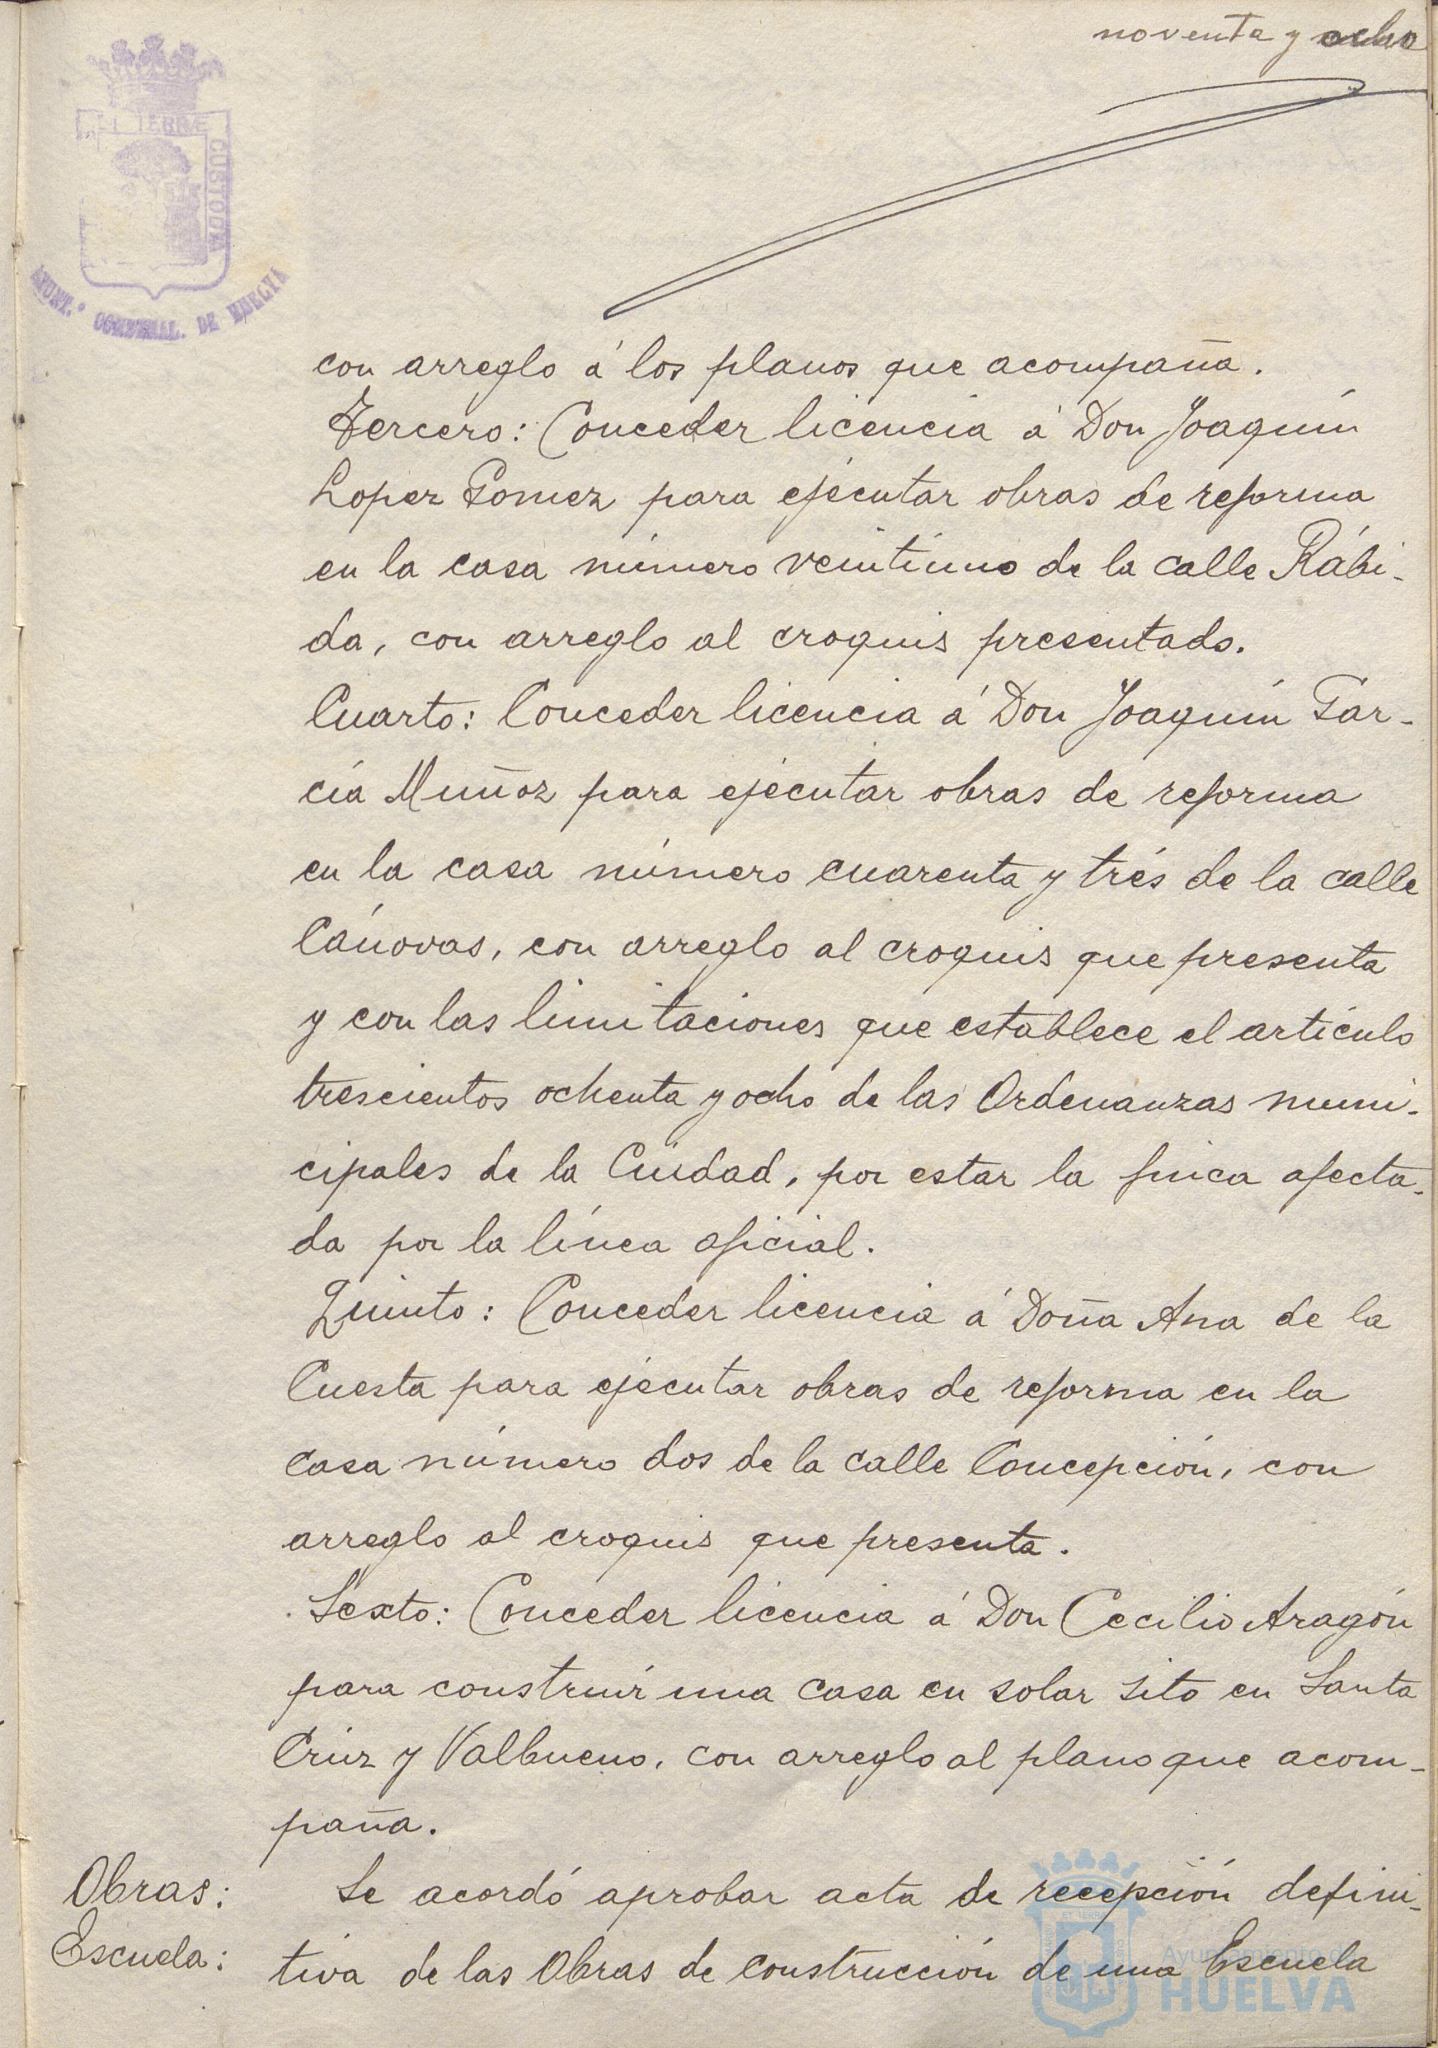 noventa y ocho
ET TERRÆ
CUSTODIA
AYUNT.º CONSTNAL. DE HUELVA
con arreglo á los planos que acompaña.
Tercero: Conceder licencia á Don Joaquín
Lopez Gomez para ejecutar obras de reforma
en la casa número veintiuno de la calle Rábi-
da, con arreglo al croquis presentado.
Cuarto: Conceder licencia á Don Joaquín Gar-
cía Muñoz para ejecutar obras de reforma
en la casa número cuarenta y trés de la calle
Cánovas, con arreglo al croquis que presenta
y con las limitaciones que establece el artículo
trescientos ochenta y ocho de las Ordenanzas muni-
cipales de la Ciudad, por estar la finca afecta-
da por la línea oficial.
Quinto: Conceder licencia á Doña Ana de la
Cuesta para ejecutar obras de reforma en la
casa número dos de la calle Concepción, con
arreglo al croquis que presenta.
Sexto: Conceder licencia á Don Cecilio Aragón
para construír una casa en solar sito en Santa
Crúz y Valbueno, con arreglo al plano que acom-
paña.
Obras:
Escuela:
Se acordó aprobar acta de recepción defini-
tiva de las Obras de construcción de una Escuela
Ayuntamiento de
HUELVA